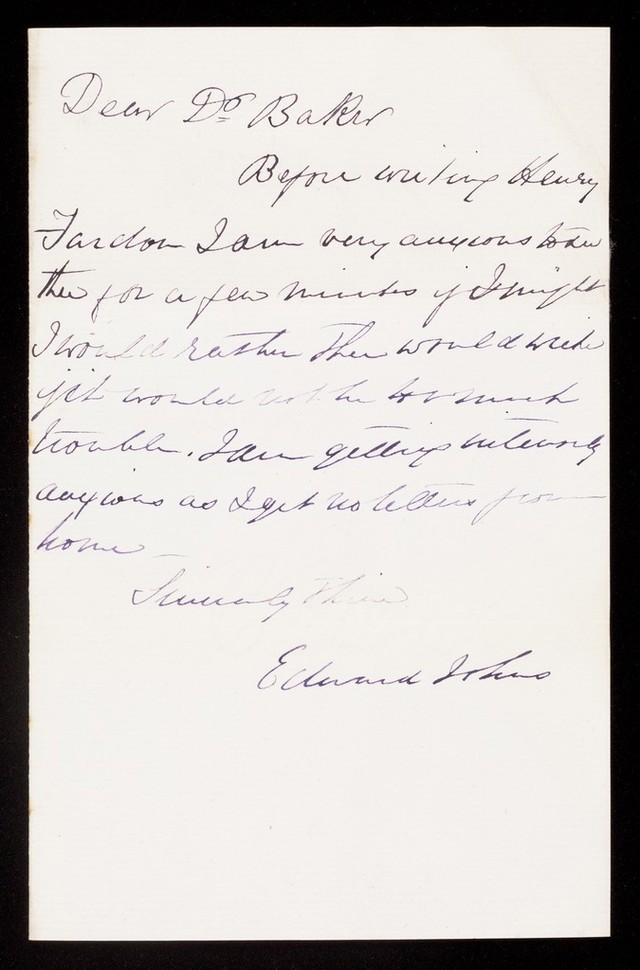 Dear Dr Baker
Before writing Henry
Fardon I am very anxious to see
thee for a few minutes if I might
I would rather Thee would write
if it would not be too much
trouble. I am getting intensely
anxious as I get no letters from
home
Sincerely Thine
Edward Johns